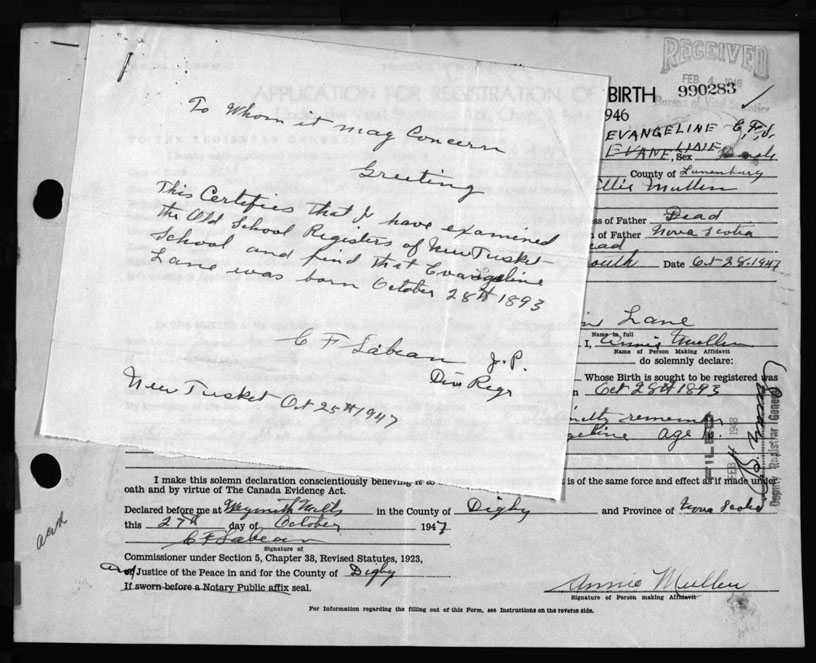 RECEIVED
FEB 4 1948
990283
Bureau of Vital Statistics
APPLICATION FOR REGISTRATION OF BIRTH
1946
EVANGELINE C, F, J.
Sex
County of Lunenburg
Mullen
ss of Father Dead
of Father Nova Scotia
ead
outh Date Oct 28. 1947
To Whom it may Concern
Greeting
This Certifies that I have examined
the Old School Registers of New Tusket
School and find that Evangeline
Lane was born October 28th 1893
C F Sabean J. P.
Div Regr
New Tusket Oct 25th 1947
Lane
Name in full
I, Annie Mullen
Name of Person Making Affidavit
do solemnly declare:
Whose Birth is sought to be registered was
n Oct 28th 1893
geline age
FILED
FEB 4 1948
Deputy Registrar General
I make this solemn declaration conscientiously believing it to is of the same force and effect as if made under
oath and by virtue of The Canada Evidence Act.
Declared before me at Weymouth Mills in the County of Digby and Province of Nova Scotia
this 27th day of October 1947
C F Sabean
Signature of
Commissioner under Section 5, Chapter 38, Revised Statutes, 1923,
and Justice of the Peace in and for the County of Digby
If sworn before a Notary Public affix seal.
Annie Mullen
Signature of Person making Affidavit
For Information regarding the filling out of this Form, see Instructions on the reverse side.